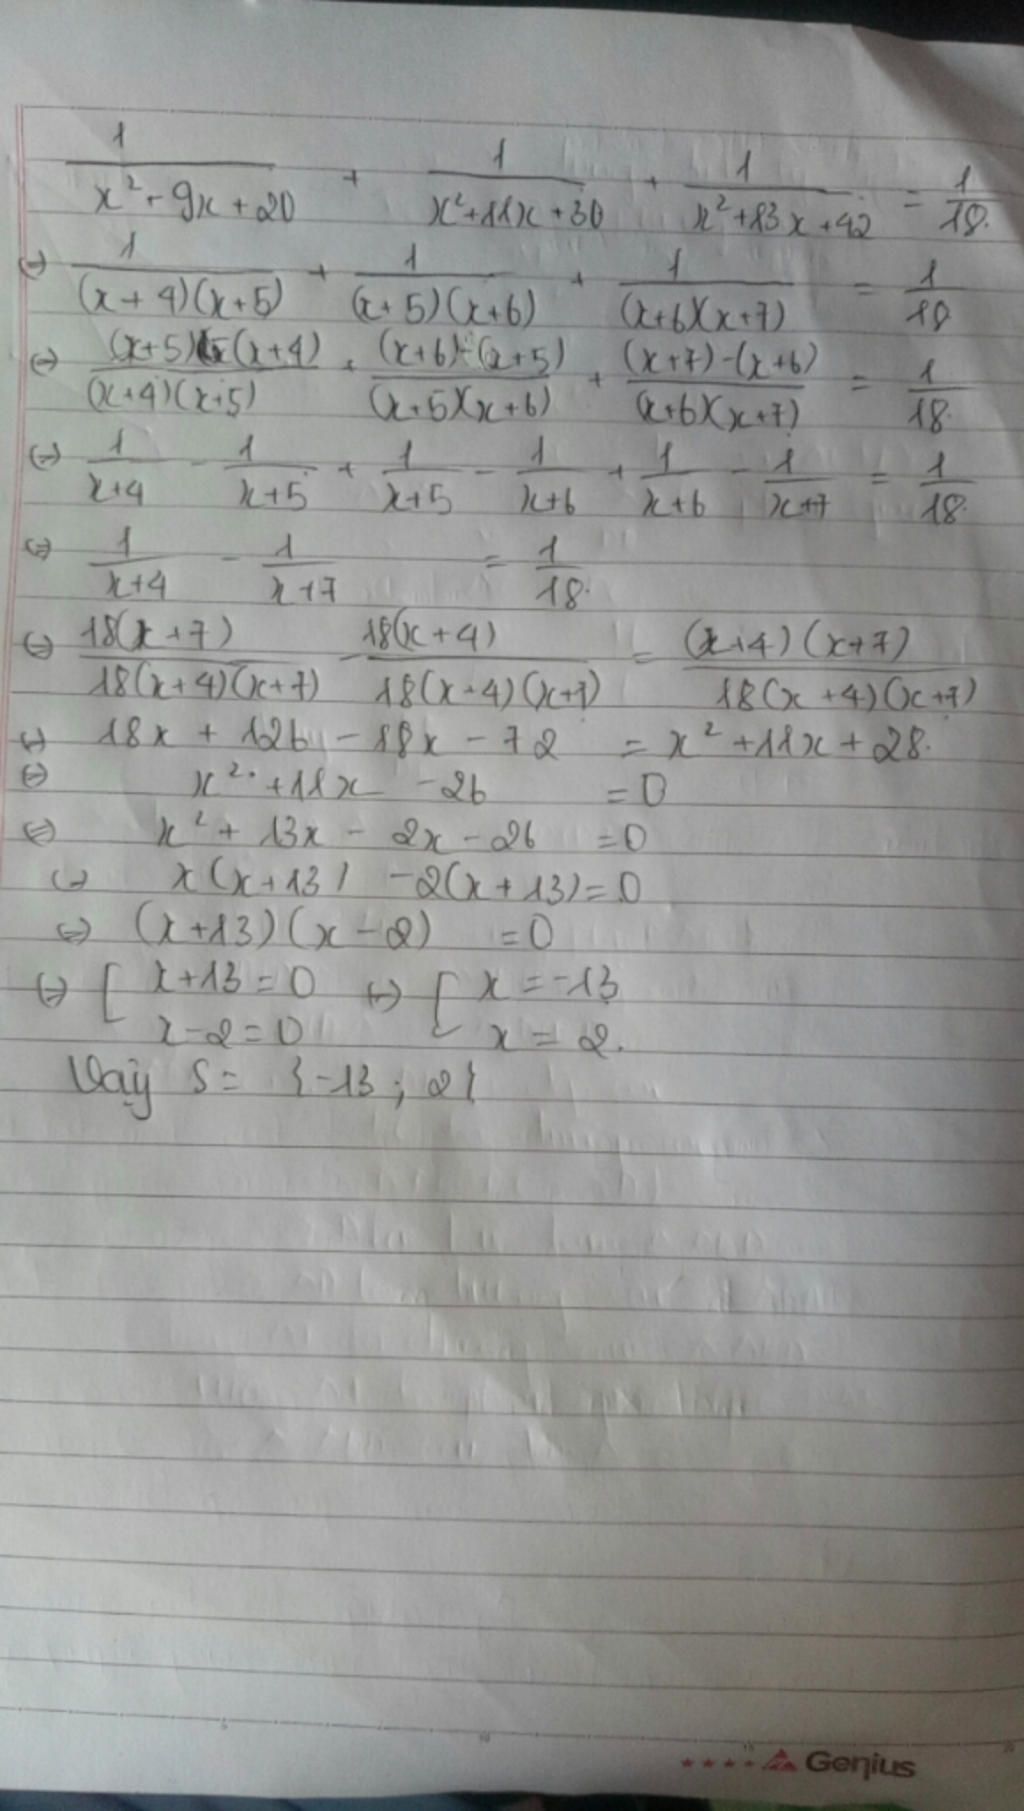 1/(x² + 9x + 20) + 1/(x² + 11x + 30) + 1/(x² + 13x + 42) = 1/18.
(=) 1/((x + 4)(x + 5)) + 1/((x + 5)(x + 6)) + 1/((x+6)(x+7)) = 1/18
(=) ((x+5) - (x+4))/((x+4)(x+5)) + ((x+6) - (x+5))/((x+5)(x+6)) + ((x+7) - (x+6))/((x+6)(x+7)) = 1/18.
(=) 1/(x+4) - 1/(x+5) + 1/(x+5) - 1/(x+6) + 1/(x+6) - 1/(x+7) = 1/18.
(=) 1/(x+4) - 1/(x+7) = 1/18.
(=) 18(x+7)/(18(x+4)(x+7)) - 18(x+4)/(18(x+4)(x+7)) = (x+4)(x+7)/(18(x+4)(x+7))
(=) 18x + 126 - 18x - 72 = x² + 11x + 28.
(=) x² + 11x - 26 = 0
(=) x² + 13x - 2x - 26 = 0
(=) x(x+13) - 2(x+13) = 0
(=) (x+13)(x-2) = 0
(=) [ x+13 = 0 (=) [ x = -13
x-2 = 0 x = 2.
Vậy S = {-13 ; 2}
Genius